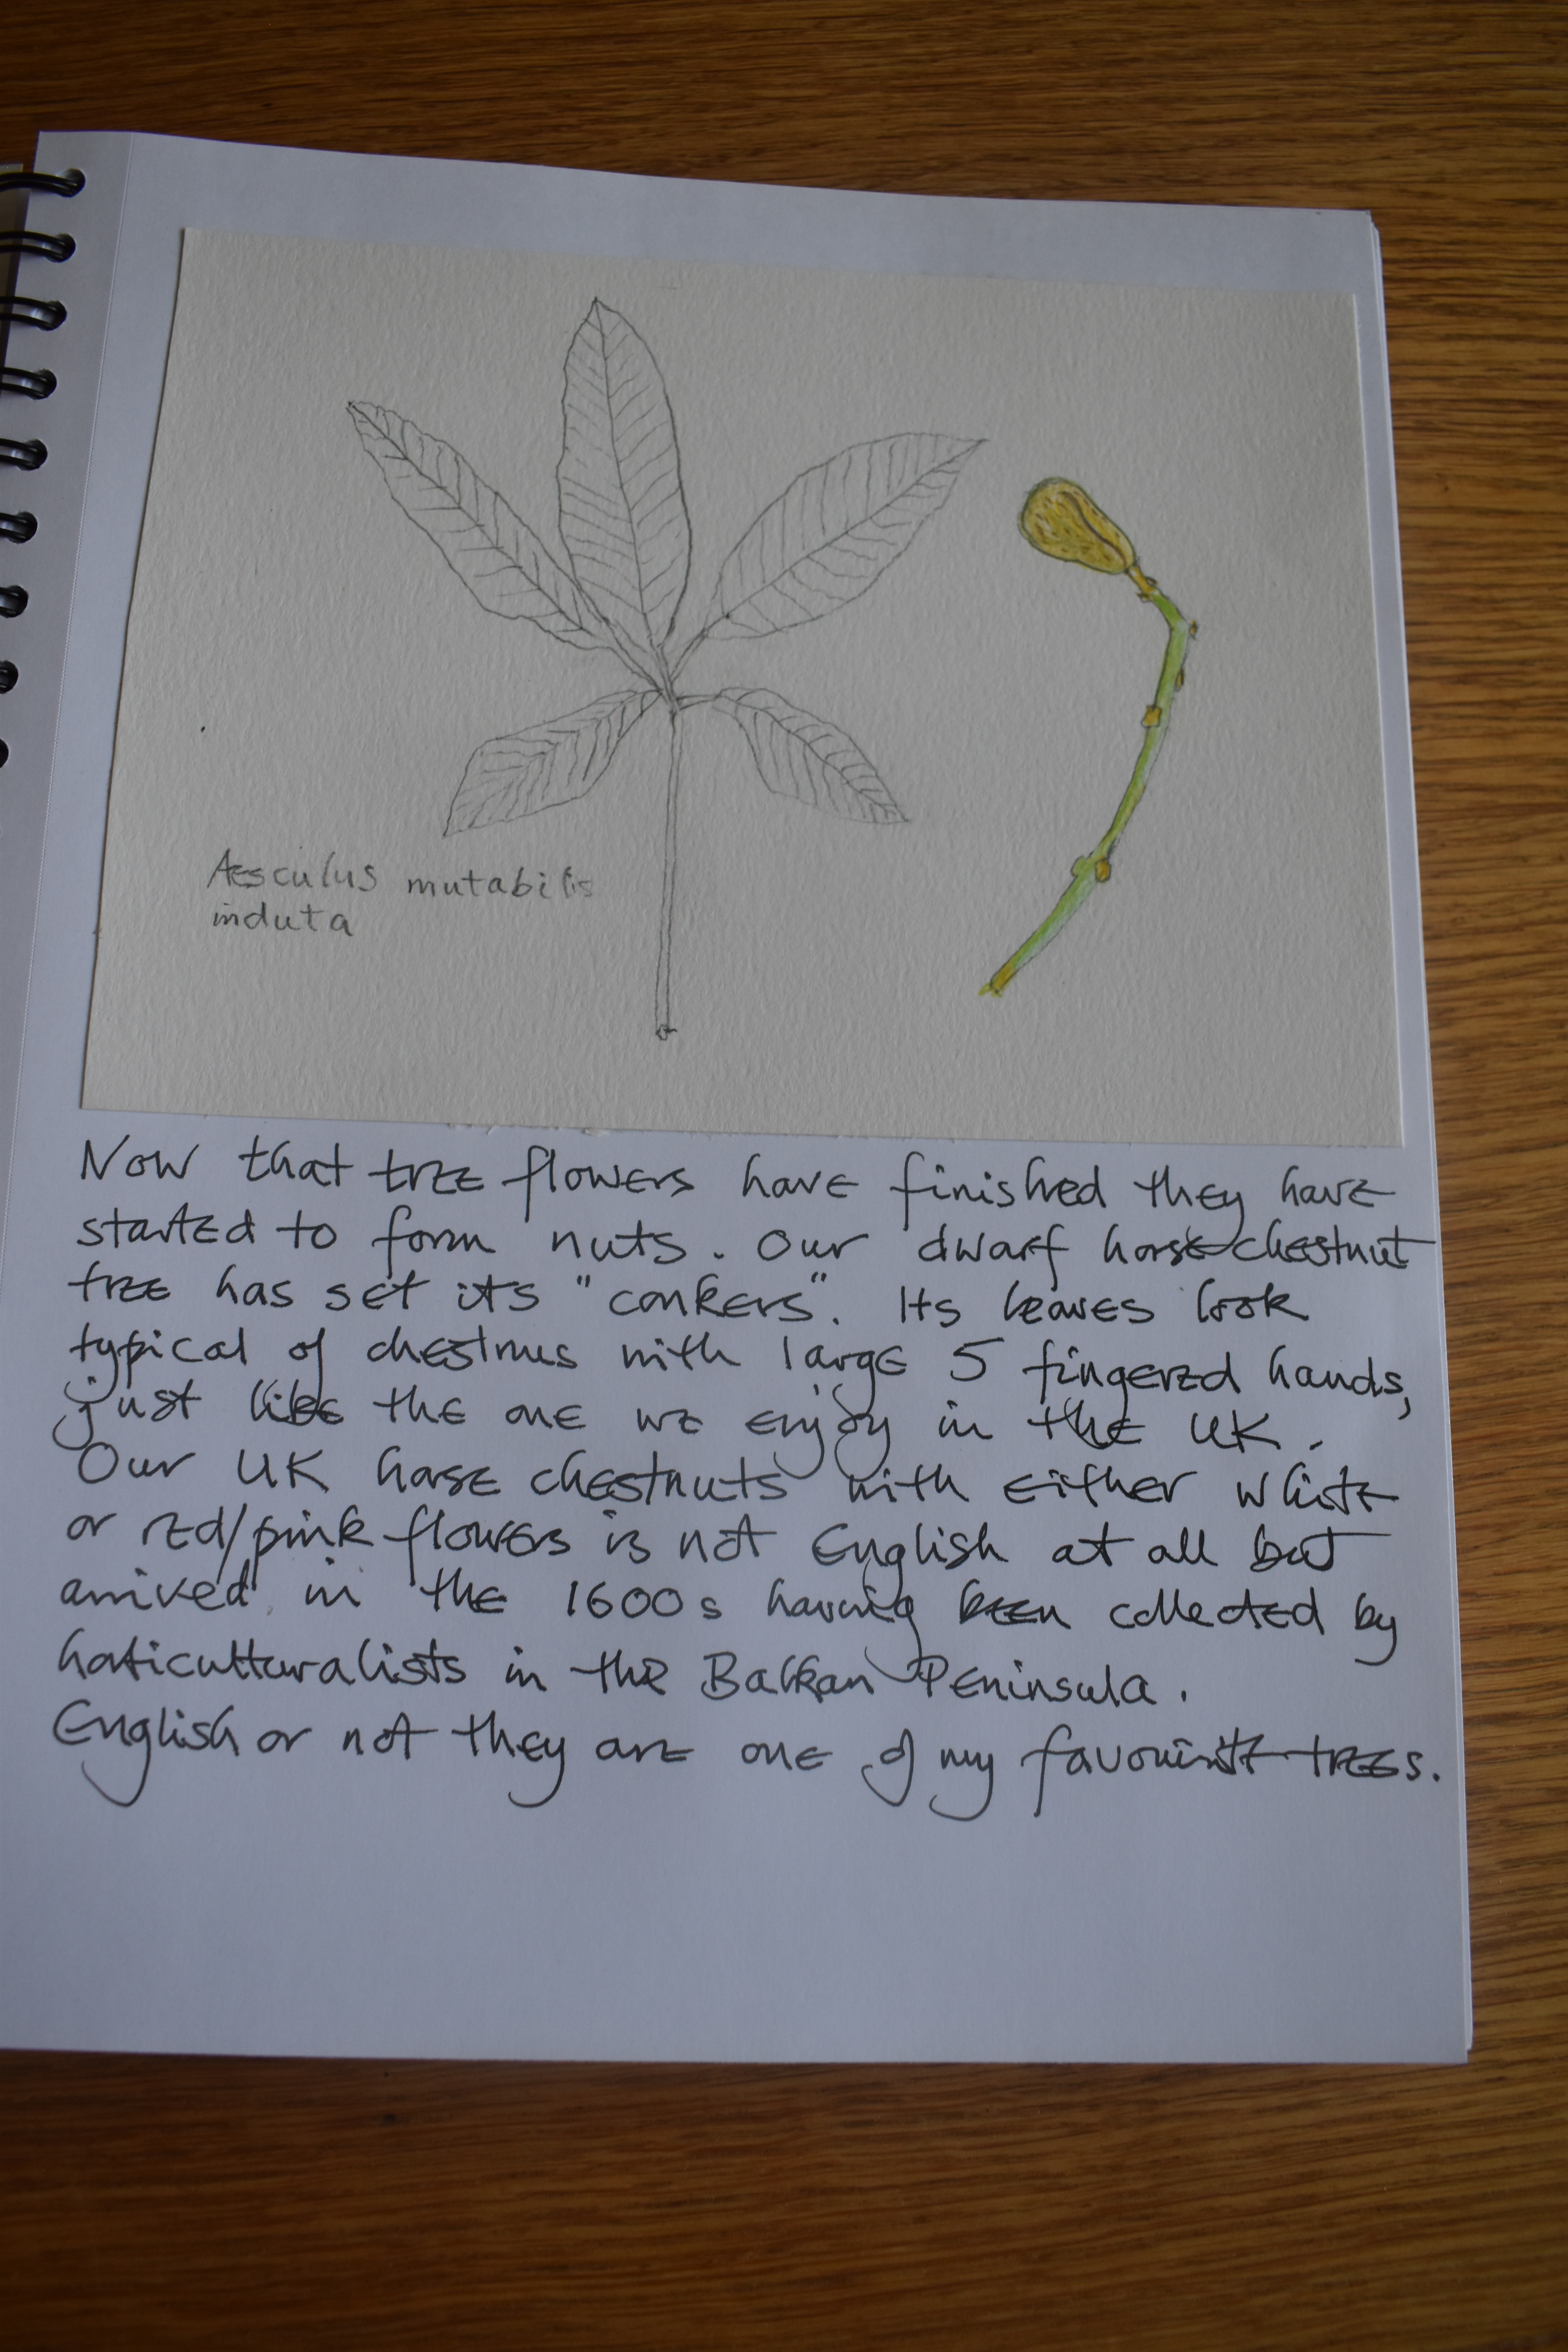 Aesculus mutabilis
induta
Now that tree flowers have finished they have
started to form nuts. Our dwarf horse chestnut
tree has set its "conkers". Its leaves look
typical of chestnus with large 5 fingered hands,
just like the one we enjoy in the UK.
Our UK horse chestnuts with either white
or red/pink flowers is not English at all but
arrived in the 1600s having been collected by
horticulturalists in the Balkan Peninsula.
English or not they are one of my favourite trees.